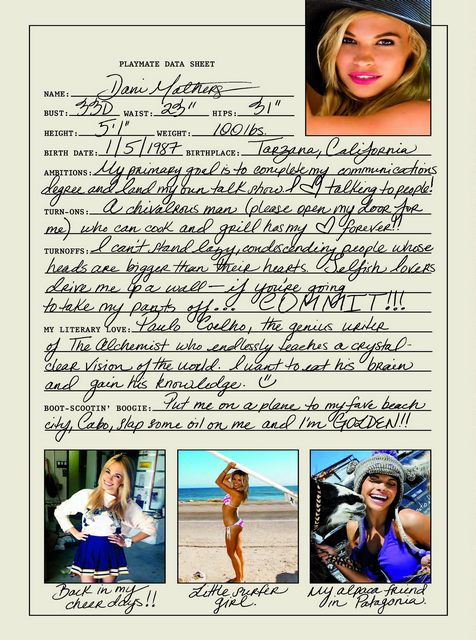 PLAYMATE DATA SHEET
NAME: Dani Mathers
BUST: 33D WAIST: 23" HIPS: 31"
HEIGHT: 5'1" WEIGHT: 100 lbs.
BIRTH DATE: 1/5/1987 BIRTHPLACE: Tarzana, California
AMBITIONS: My primary goal is to complete my communications
degree and land my own talk show. I ♡ talking to people!
TURN-ONS: A chivalrous man (please open my door for
me) who can cook and grill has my ♡ forever!!
TURNOFFS: I can't stand lazy, condescending people whose
heads are bigger than their hearts. Selfish lovers
drive me up a wall — if you're going
to take my pants off... COMMIT!!!
MY LITERARY LOVE: Paulo Coelho, the genius writer
of The Alchemist who endlessly teaches a crystal-
clear vision of the world. I want to eat his brain
and gain his knowledge. ☺
BOOT-SCOOTIN' BOOGIE: Put me on a plane to my fave beach
city, Cabo, slap some oil on me and I'm GOLDEN!!
Back in my
cheer days!!
Little surfer
girl.
My alpaca friend
in Patagonia.